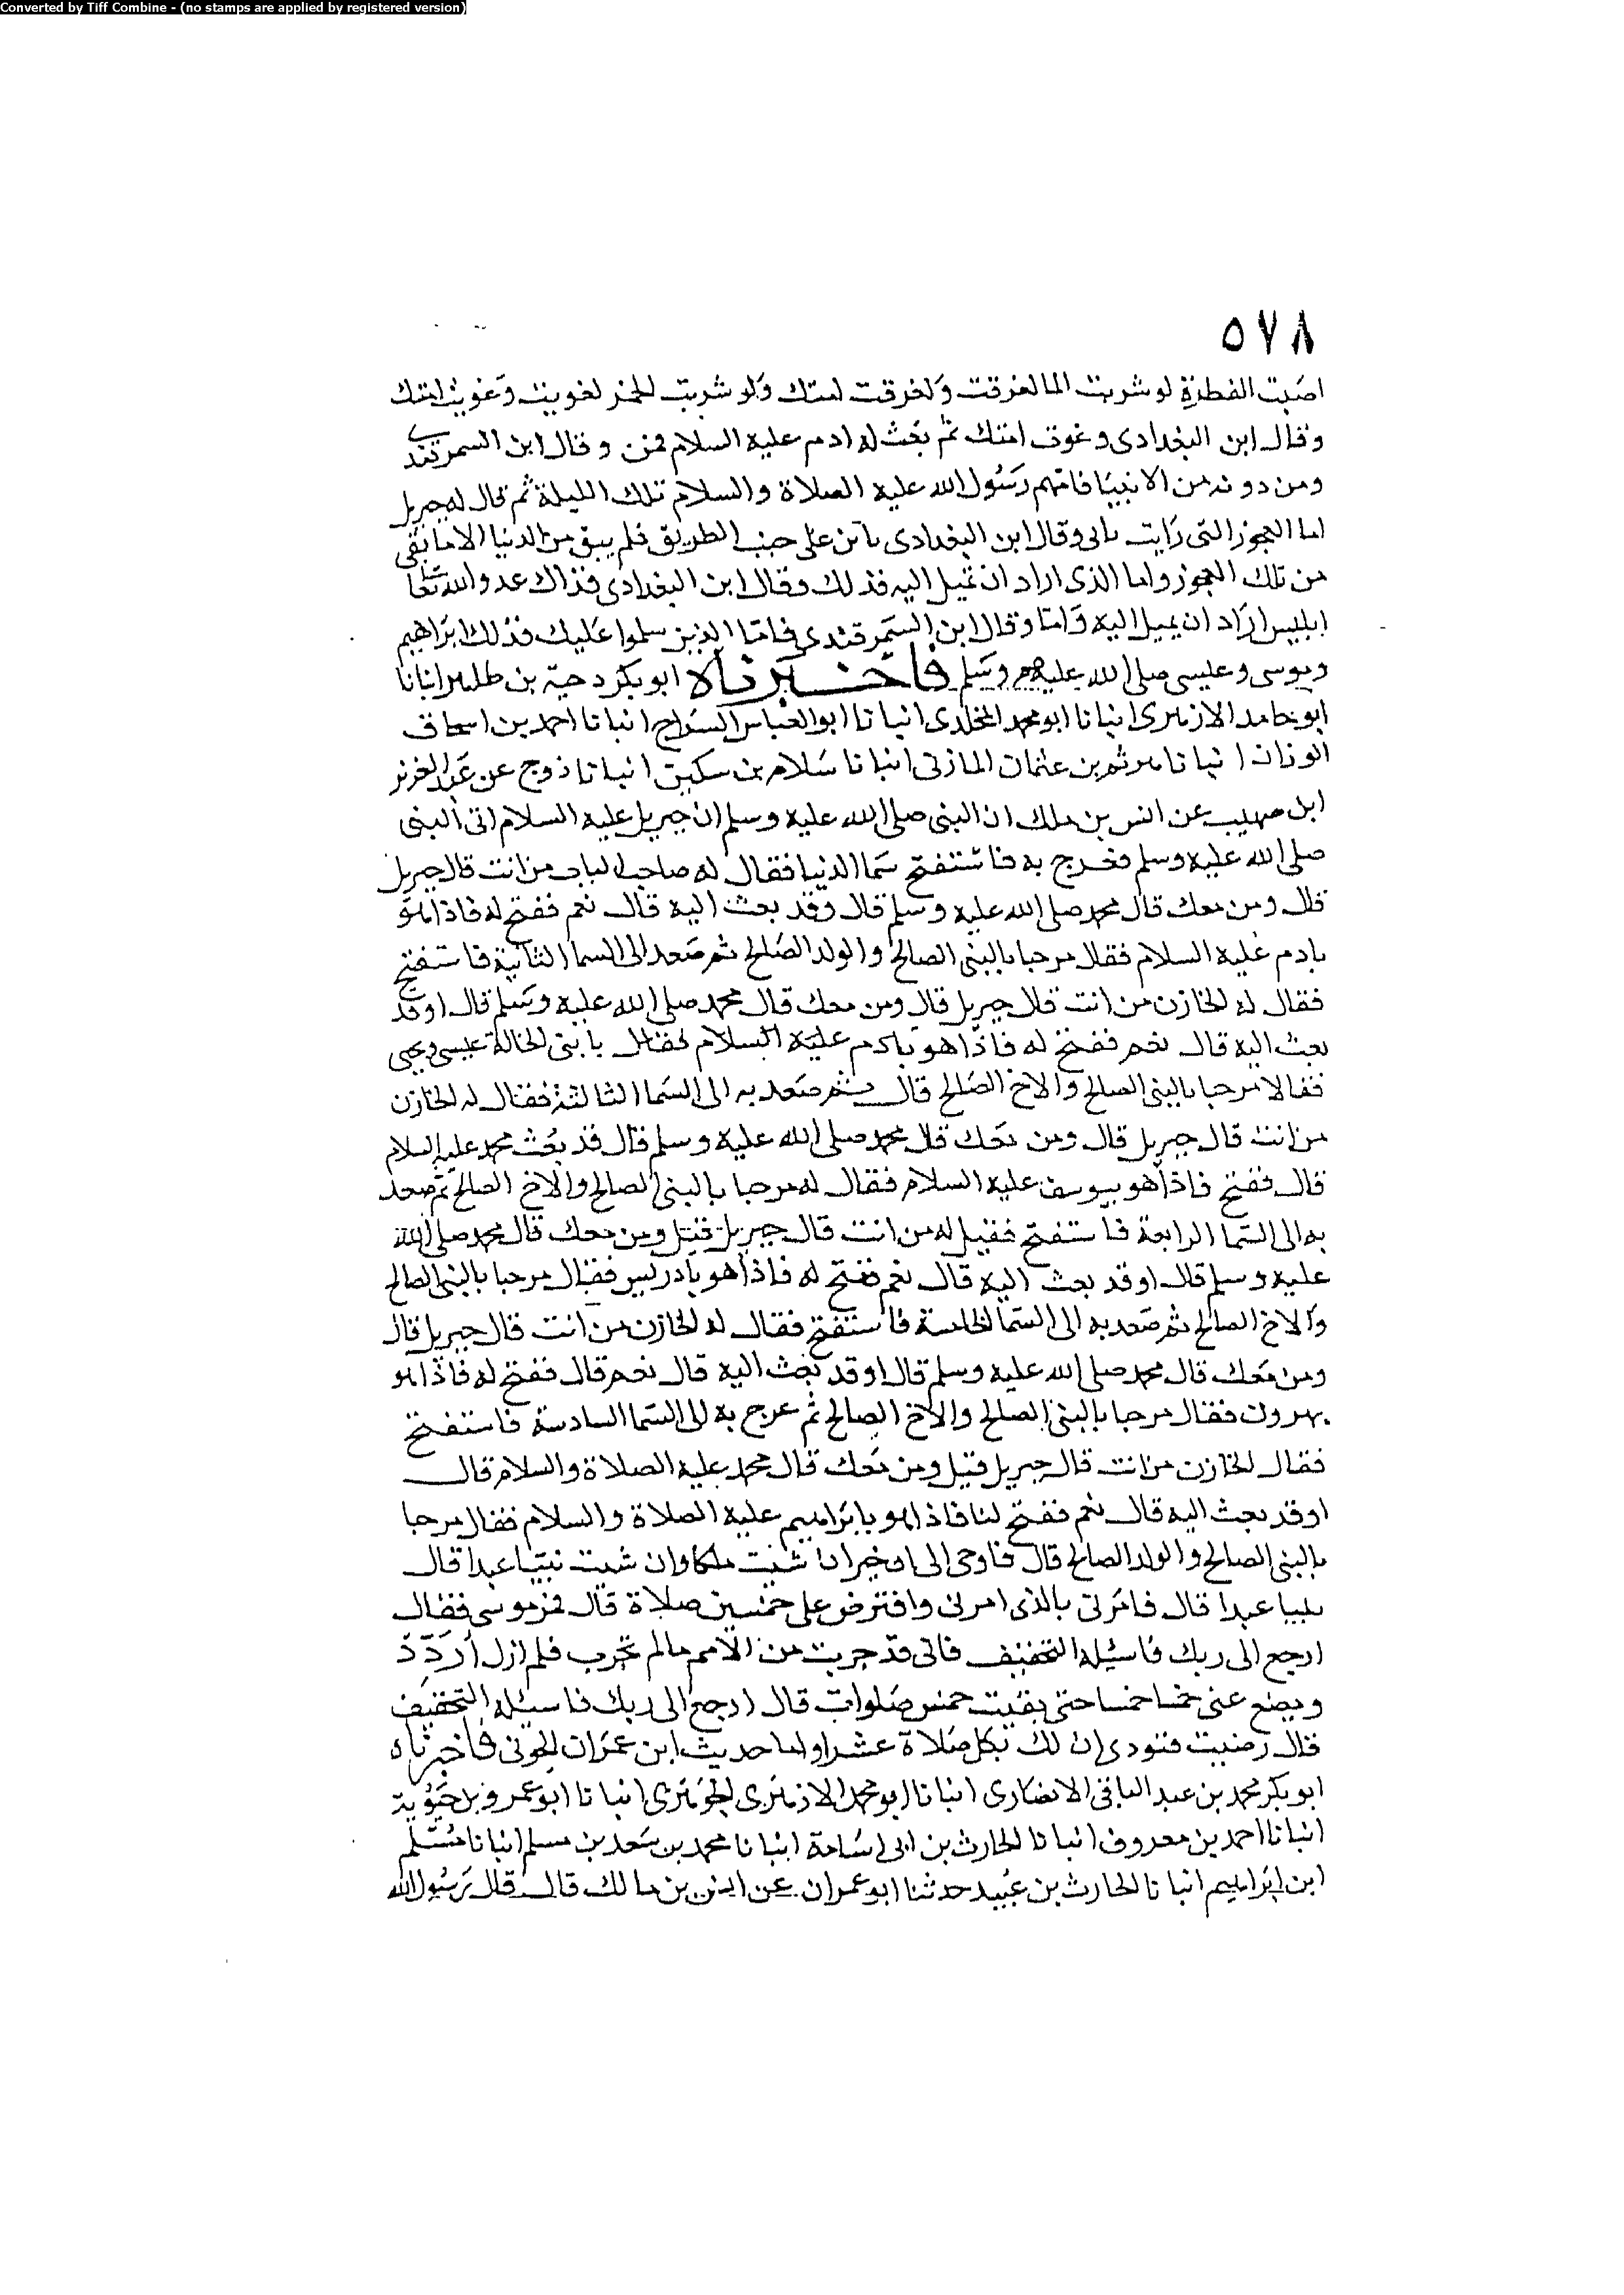 Converted by Tiff Combine - (no stamps are applied by registered version)
٥٧٨
اصبت الفطرة لو شربت الما لغرقت ولغرقت امتك ولو شربت الخمر لغويت وغويت امتك
وقال ابن البغدادى وغوت امتك ثم بعث له ادم عليه السلام فمن وقال ابن السمرقندى
ومن دونه من الانبيا فامهم رسول الله عليه الصلاة والسلام تلك الليلة ثم قال له جبريل
اما العجوز التى رايت بابى وقال ابن البغدادى باتن على جنب الطريق فلم يبق من الدنيا الا ما بقى
من تلك العجوز واما الذى اراد ان تميل اليه فذلك وقال ابن البغدادى فذاك عدو الله تعا
ابليس اراد ان يميل اليه واما وقال ابن السمرقندى فاما الذين سلموا عليك فذلك ابراهيم
وموسى وعليسى صلى الله عليهم وسلم فاخبرناه ابو بكر دحية بن طاهر انبانا
ابو حامد الازهرى انبانا ابو محمد المخلدى انبانا ابو العباس السراج انبانا احمد بن اسحاق
الوزان انبانا هرثم بن عثمان المازنى انبانا سلام بن سكين انبانا ذوج عن عبد العزيز
ابن صهيب عن انس بن ملك ان النبى صلى الله عليه وسلم ان جبريل عليه السلام اتى النبى
صلى الله عليه وسلم فعرج به فاستفتح سما الدنيا فقال له صاحب الباب من انت قال جبريل
قال ومن معك قال محمد صلى الله عليه وسلم قال وقد بعث اليه قال نعم ففتح له فاذا هو
بادم عليه السلام فقال مرحبا بالنبى الصالح والولد الصالح ثم صعد الى السما الثانية فاستفتح
فقال له الخازن من انت قال جبريل قال ومن معك قال محمد صلى الله عليه وسلم قال اوقد
بعث اليه قال نعم ففتح له فاذا هو بادم عليه السلام فقال بابنى الخالة عيسى ويحيى
فقالا مرحبا بالنبى الصالح والاخ الصالح قال ثم صعد به الى السما الثالثة فقال له الخازن
من انت قال جبريل قال ومن معك قال محمد صلى الله عليه وسلم قال قد بعث محمد عليه السلام
قال ففتح فاذا هو بيوسف عليه السلام فقال له مرحبا بالنبى الصالح والاخ الصالح ثم صعد
به الى السما الرابعة فاستفتح فقيل له من انت قال جبريل قيل ومن معك قال محمد صلى الله
عليه وسلم قال اوقد بعث اليه قال نعم ففتح له فاذا هو بادريس فقال مرحبا بالنبى الصالح
والاخ الصالح ثم صعد به الى السما الخامسة فاستفتح فقال له الخازن من انت قال جبريل قال
ومن معك قال محمد صلى الله عليه وسلم قال اوقد بعث اليه قال نعم قال ففتح له فاذا هو
بهرون فقال مرحبا بالنبى الصالح والاخ الصالح ثم عرج به الى السما السادسة فاستفتح
فقال الخازن من انت قال جبريل قيل ومن معك قال محمد عليه الصلاة والسلام قال
اوقد بعث اليه قال نعم ففتح لنا فاذا هو بابراهيم عليه الصلاة والسلام فقال مرحبا
بالنبى الصالح والولد الصالح قال فاوحى الى اختر ان شيت ملكا وان شيت نبيا عبدا قال
نبيا عبدا قال فامرنى بالذى امرنى وافترض على خمسين صلاة قال فمر موسى فقال
ارجع الى ربك فاسئله التخفيف فانى قد جربت من الامم مالم تجرب فلم ازل اردد
ويضع عنى خمسا خمسا حتى بقيت خمس صلوات قال ارجع الى ربك فاسئله التخفيف
قال رضيت فنودى ان لك بكل صلاة عشرا واما حديث ابن عمران الجونى فاخبرناه
ابو بكر محمد بن عبد الباقى الانصارى انبانا ابو محمد الازهرى الجوهرى انبانا ابو عمرو بن حيوية
انبانا احمد بن معروف انبانا الحارث بن ابى اسامة انبانا محمد بن سعد بن مسلم انبانا مسلم
ابن ابراهيم انبانا الحارث بن عبيد حدثنا ابو عمران عن انس بن مالك قال قال رسول الله